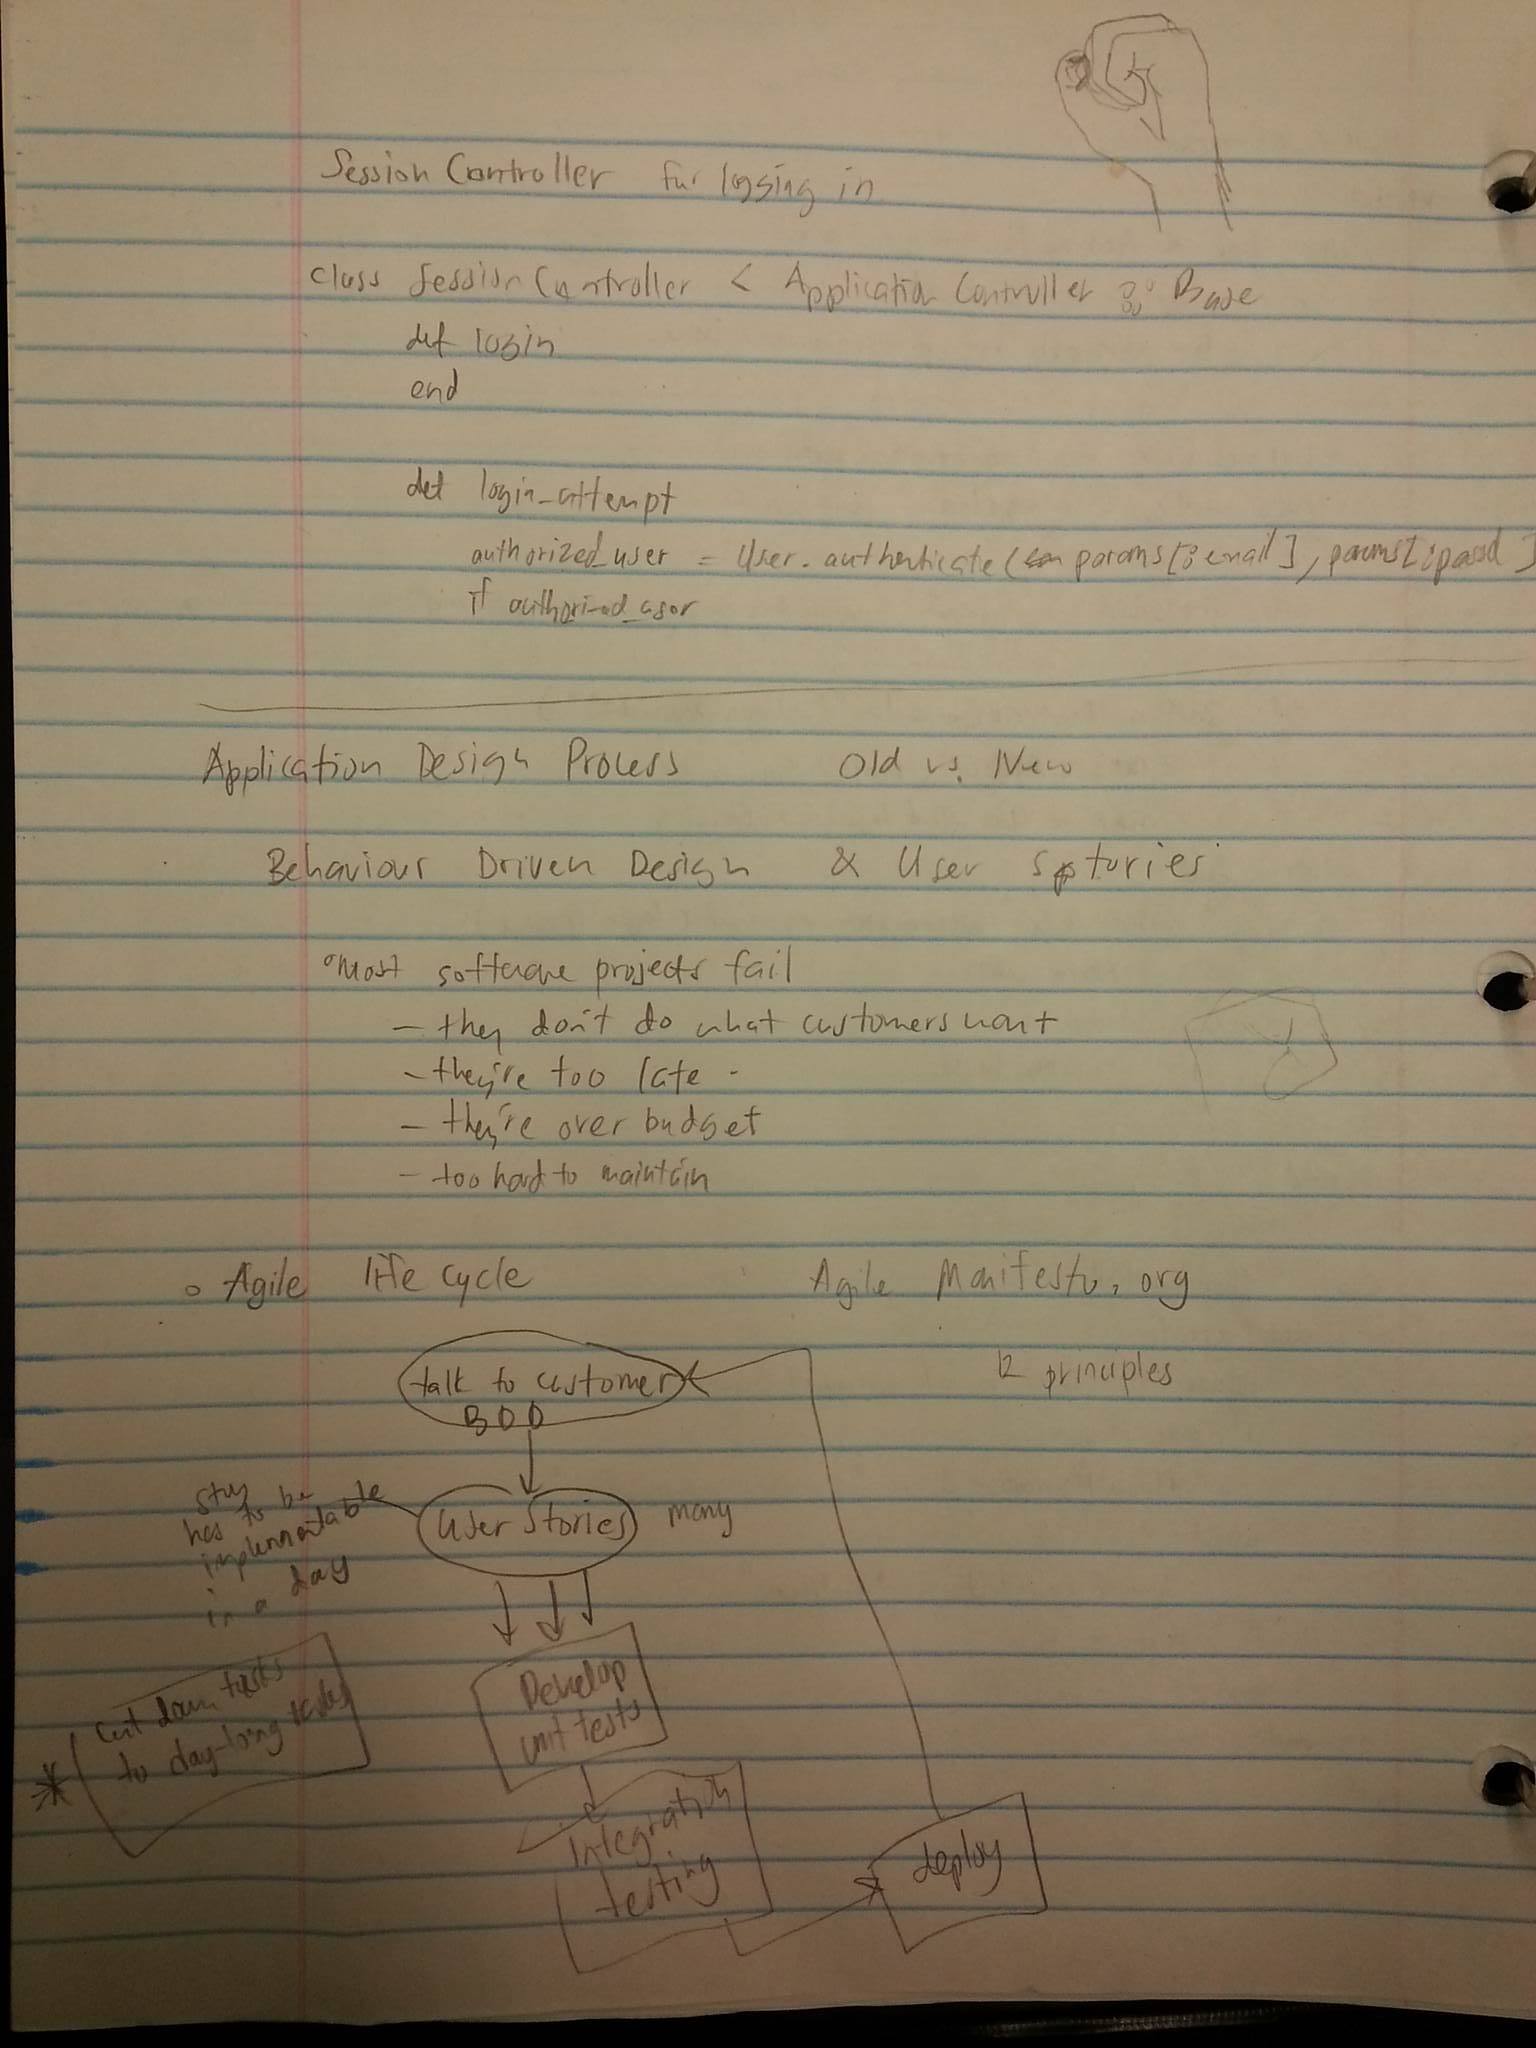 Session Controller for logging in
class Session Controller < Application Controller :: Base
def login
end
def login_attempt
authorized_user = User.authenticate( params[:email], params[:
if authorized_user
Application Design Process Old vs. New
Behaviour Driven Design & User stories
Most software projects fail
- they don't do what customers want
- they're too late
- they're over budget
- too hard to maintain
Agile life cycle Agile Manifesto.org
12 principles
talk to customer
BDD
story
has to be
implementable
in a day
User Stories many
Develop
unit tests
Cut down tasks
to day-long tasks
Integration
testing
deploy